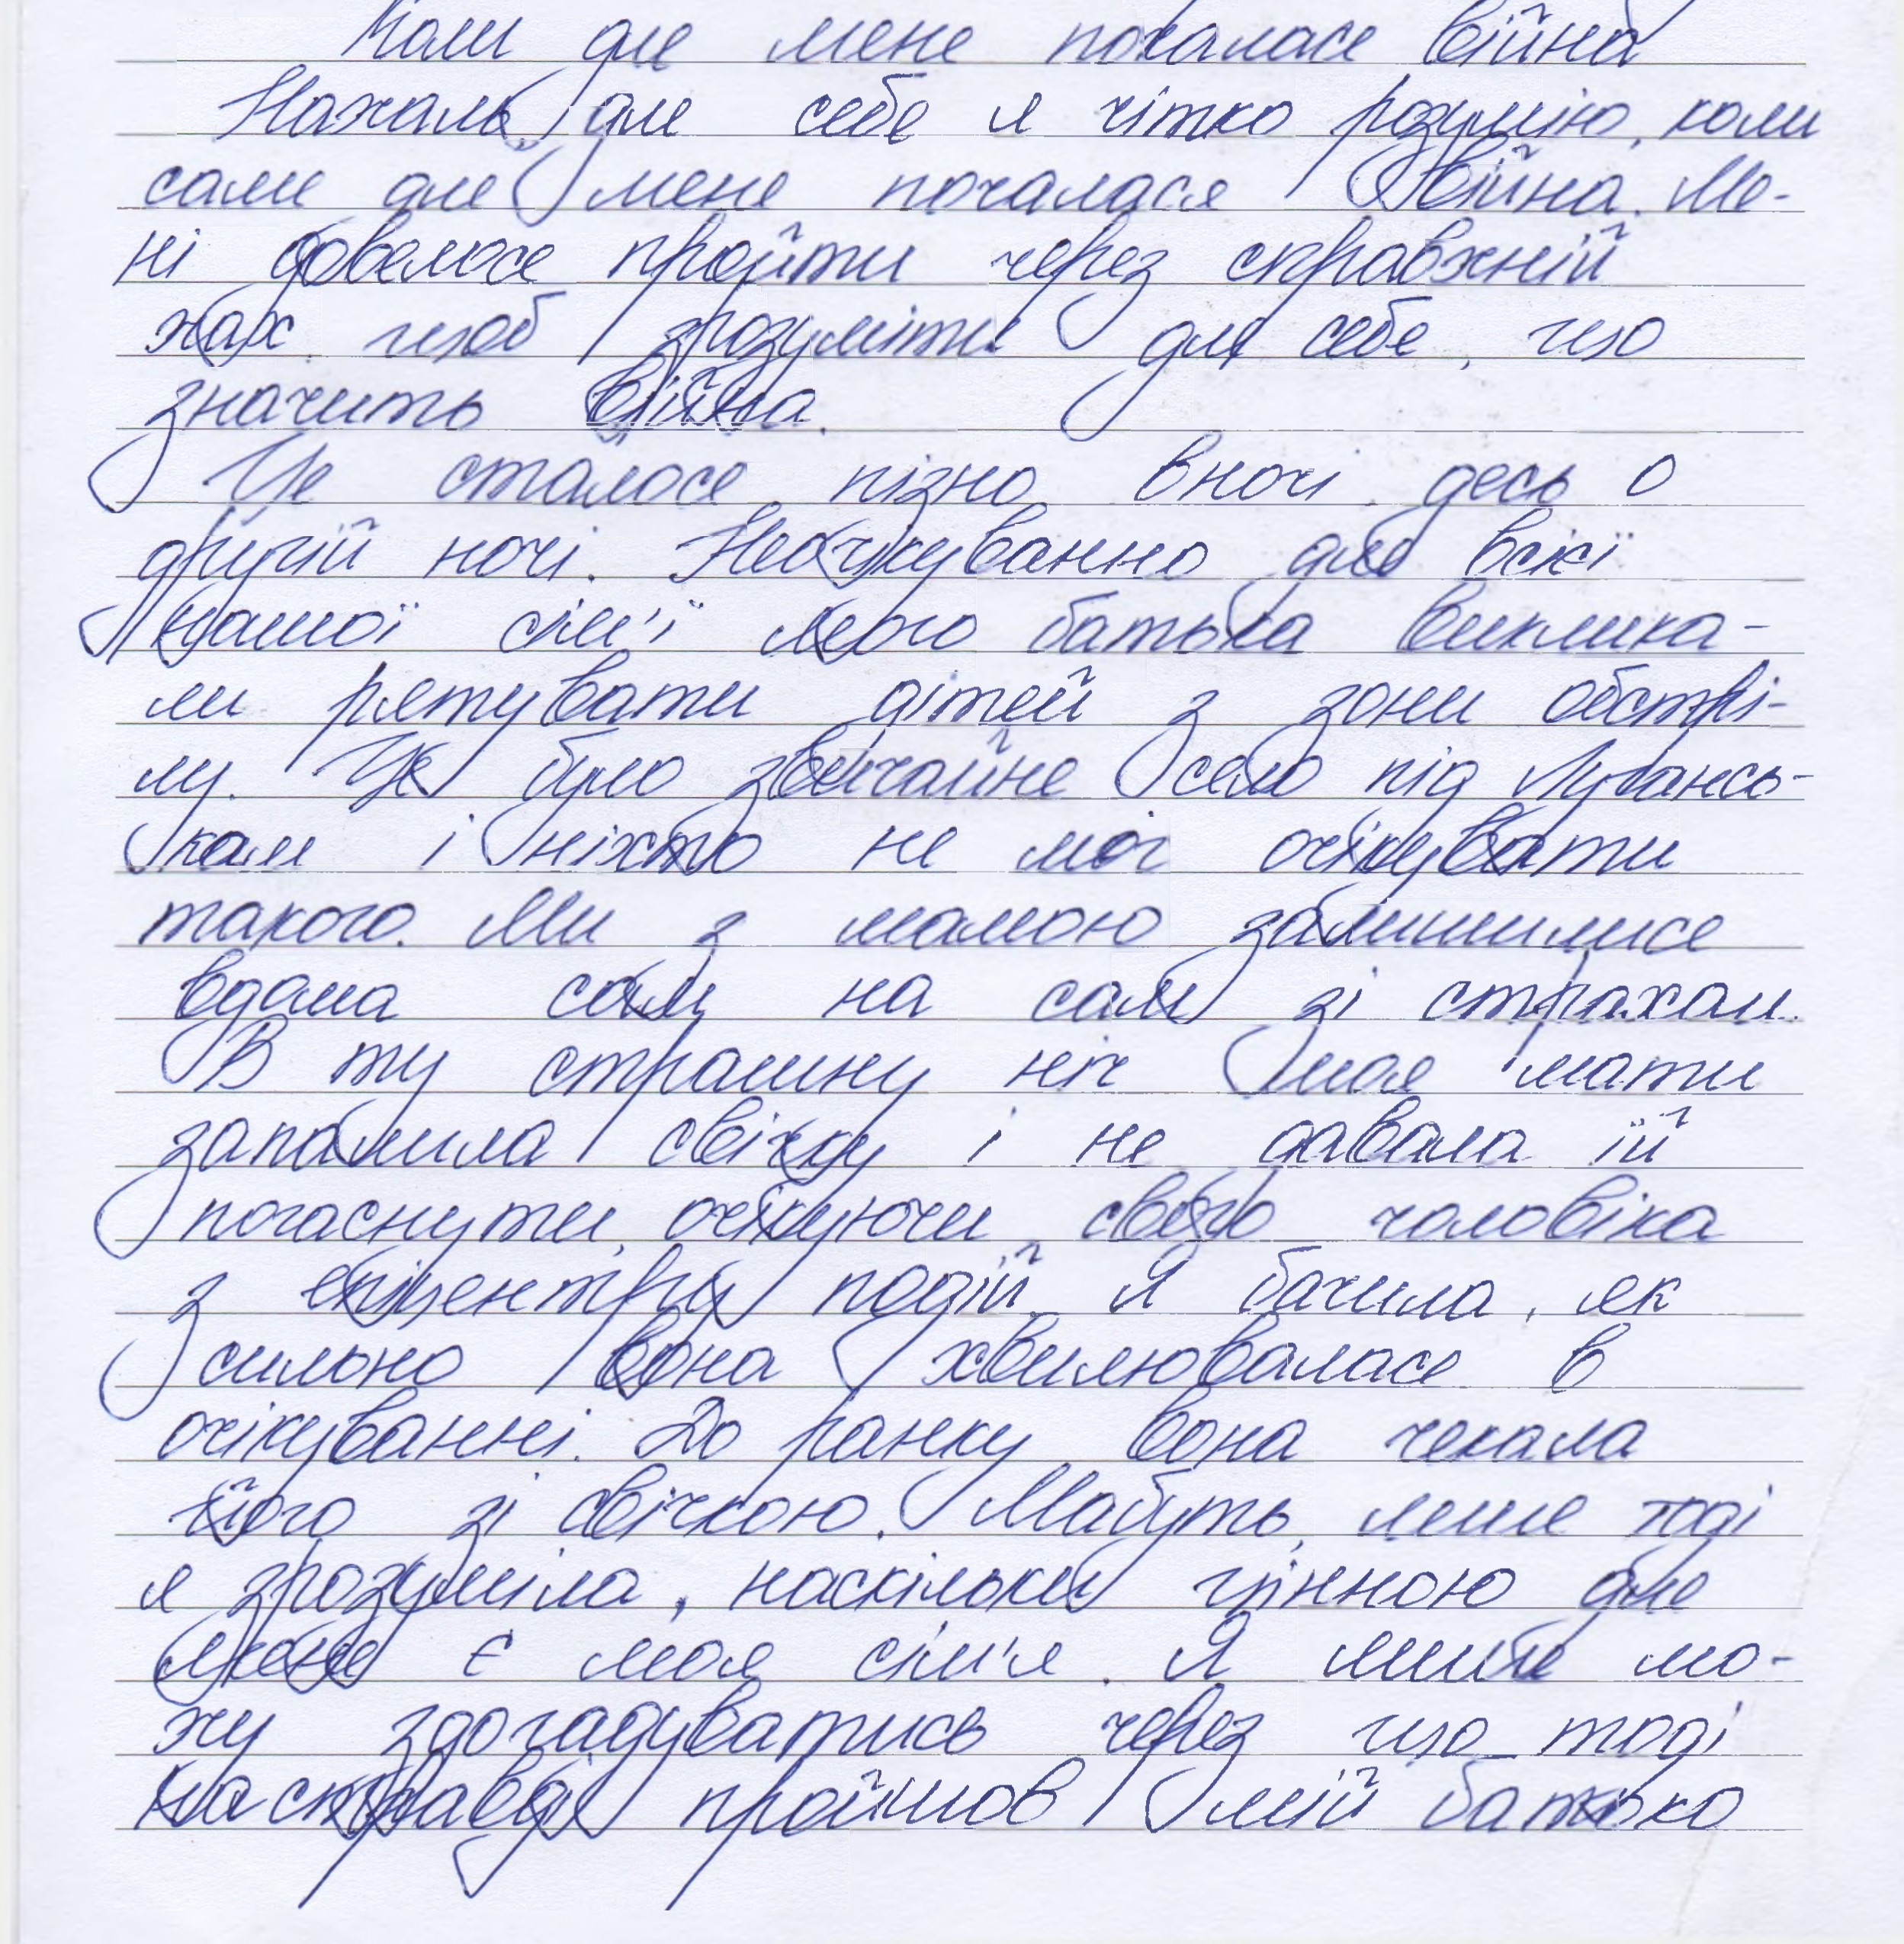 Коли для мене почалася війна
Нажаль, для себе я чітко розумію, коли
саме для мене почалася війна. Ме-
ні довелося пройти через справжній
жах, щоб зрозуміти для себе, що
значить війна.
Це сталося пізно вночі, десь о
другій ночі. Неочікуванно для всієї
нашої сім'ї мого батька виклика-
ли рятувати дітей з зони обстрі-
лу. Це було звичайне село під Лугансь-
ком і ніхто не міг очікувати
такого. Ми з мамою залишилися
вдома сам на сам зі страхом.
В ту страшну ніч моя мати
запалила свічку і не давала їй
погаснути, очікуючи свого чоловіка
з епіцентру подій. Я бачила, як
сильно вона хвилювалася в
очікуванні. До ранку вона чекала
його зі свічкою. Мабуть, лише тоді
я зрозуміла, наскільки цінною для
мене є моя сім'я. Я лише мо-
жу здогадуватись через що тоді
насправді пройшов мій батько